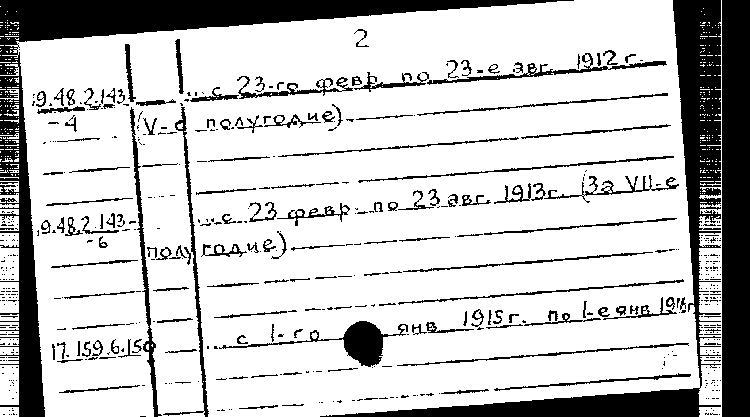 2
9.48.2.143- ... с 23-го февр. по 23-е авг. 1912 г.
-4 (V-е полугодие).
9.48.2.143- ...с 23 февр. по 23 авг. 1913г. (За VII-е
-6 полугодие).
17.159.6.150 ... с 1-го янв 1915г. по 1-е янв 1916г